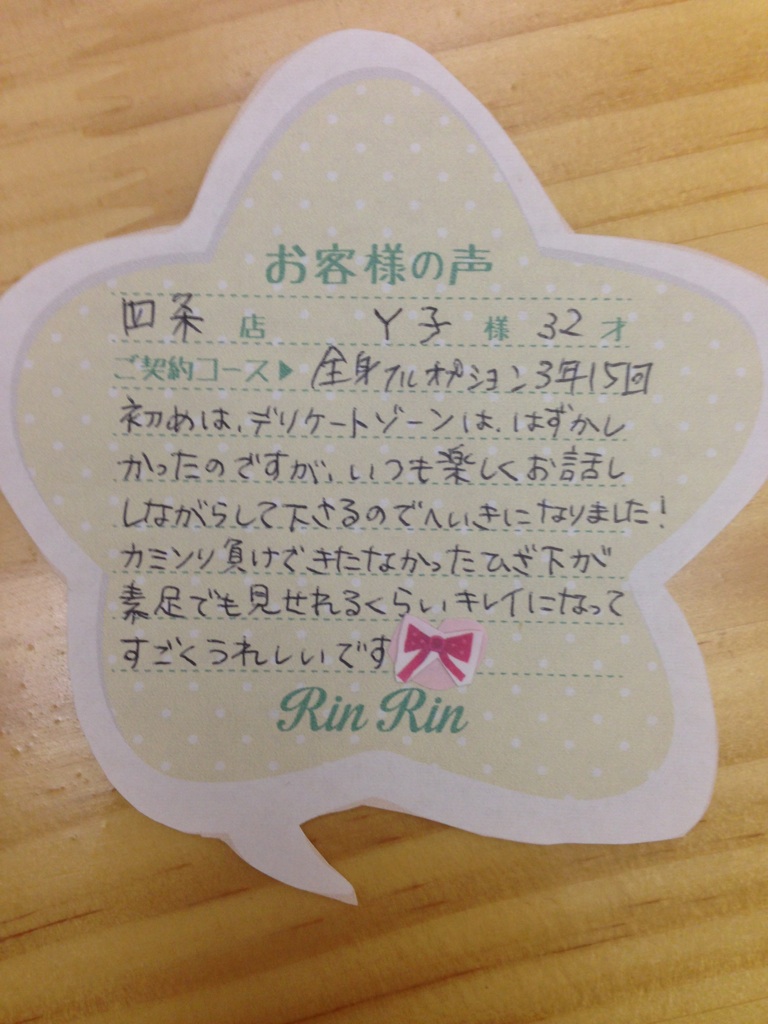 お客様の声
四条 店 Y子 様 32才
ご契約コース▶ 全身フルオプション3年15回
初めは、デリケートゾーンは、はずかし
かったのですが、いつも楽しくお話し
しながらして下さるのでへいきになりました!
カミソリ負けできたなかったひざ下が
素足でも見せれるくらいキレイになって
すごくうれしいです
Rin Rin